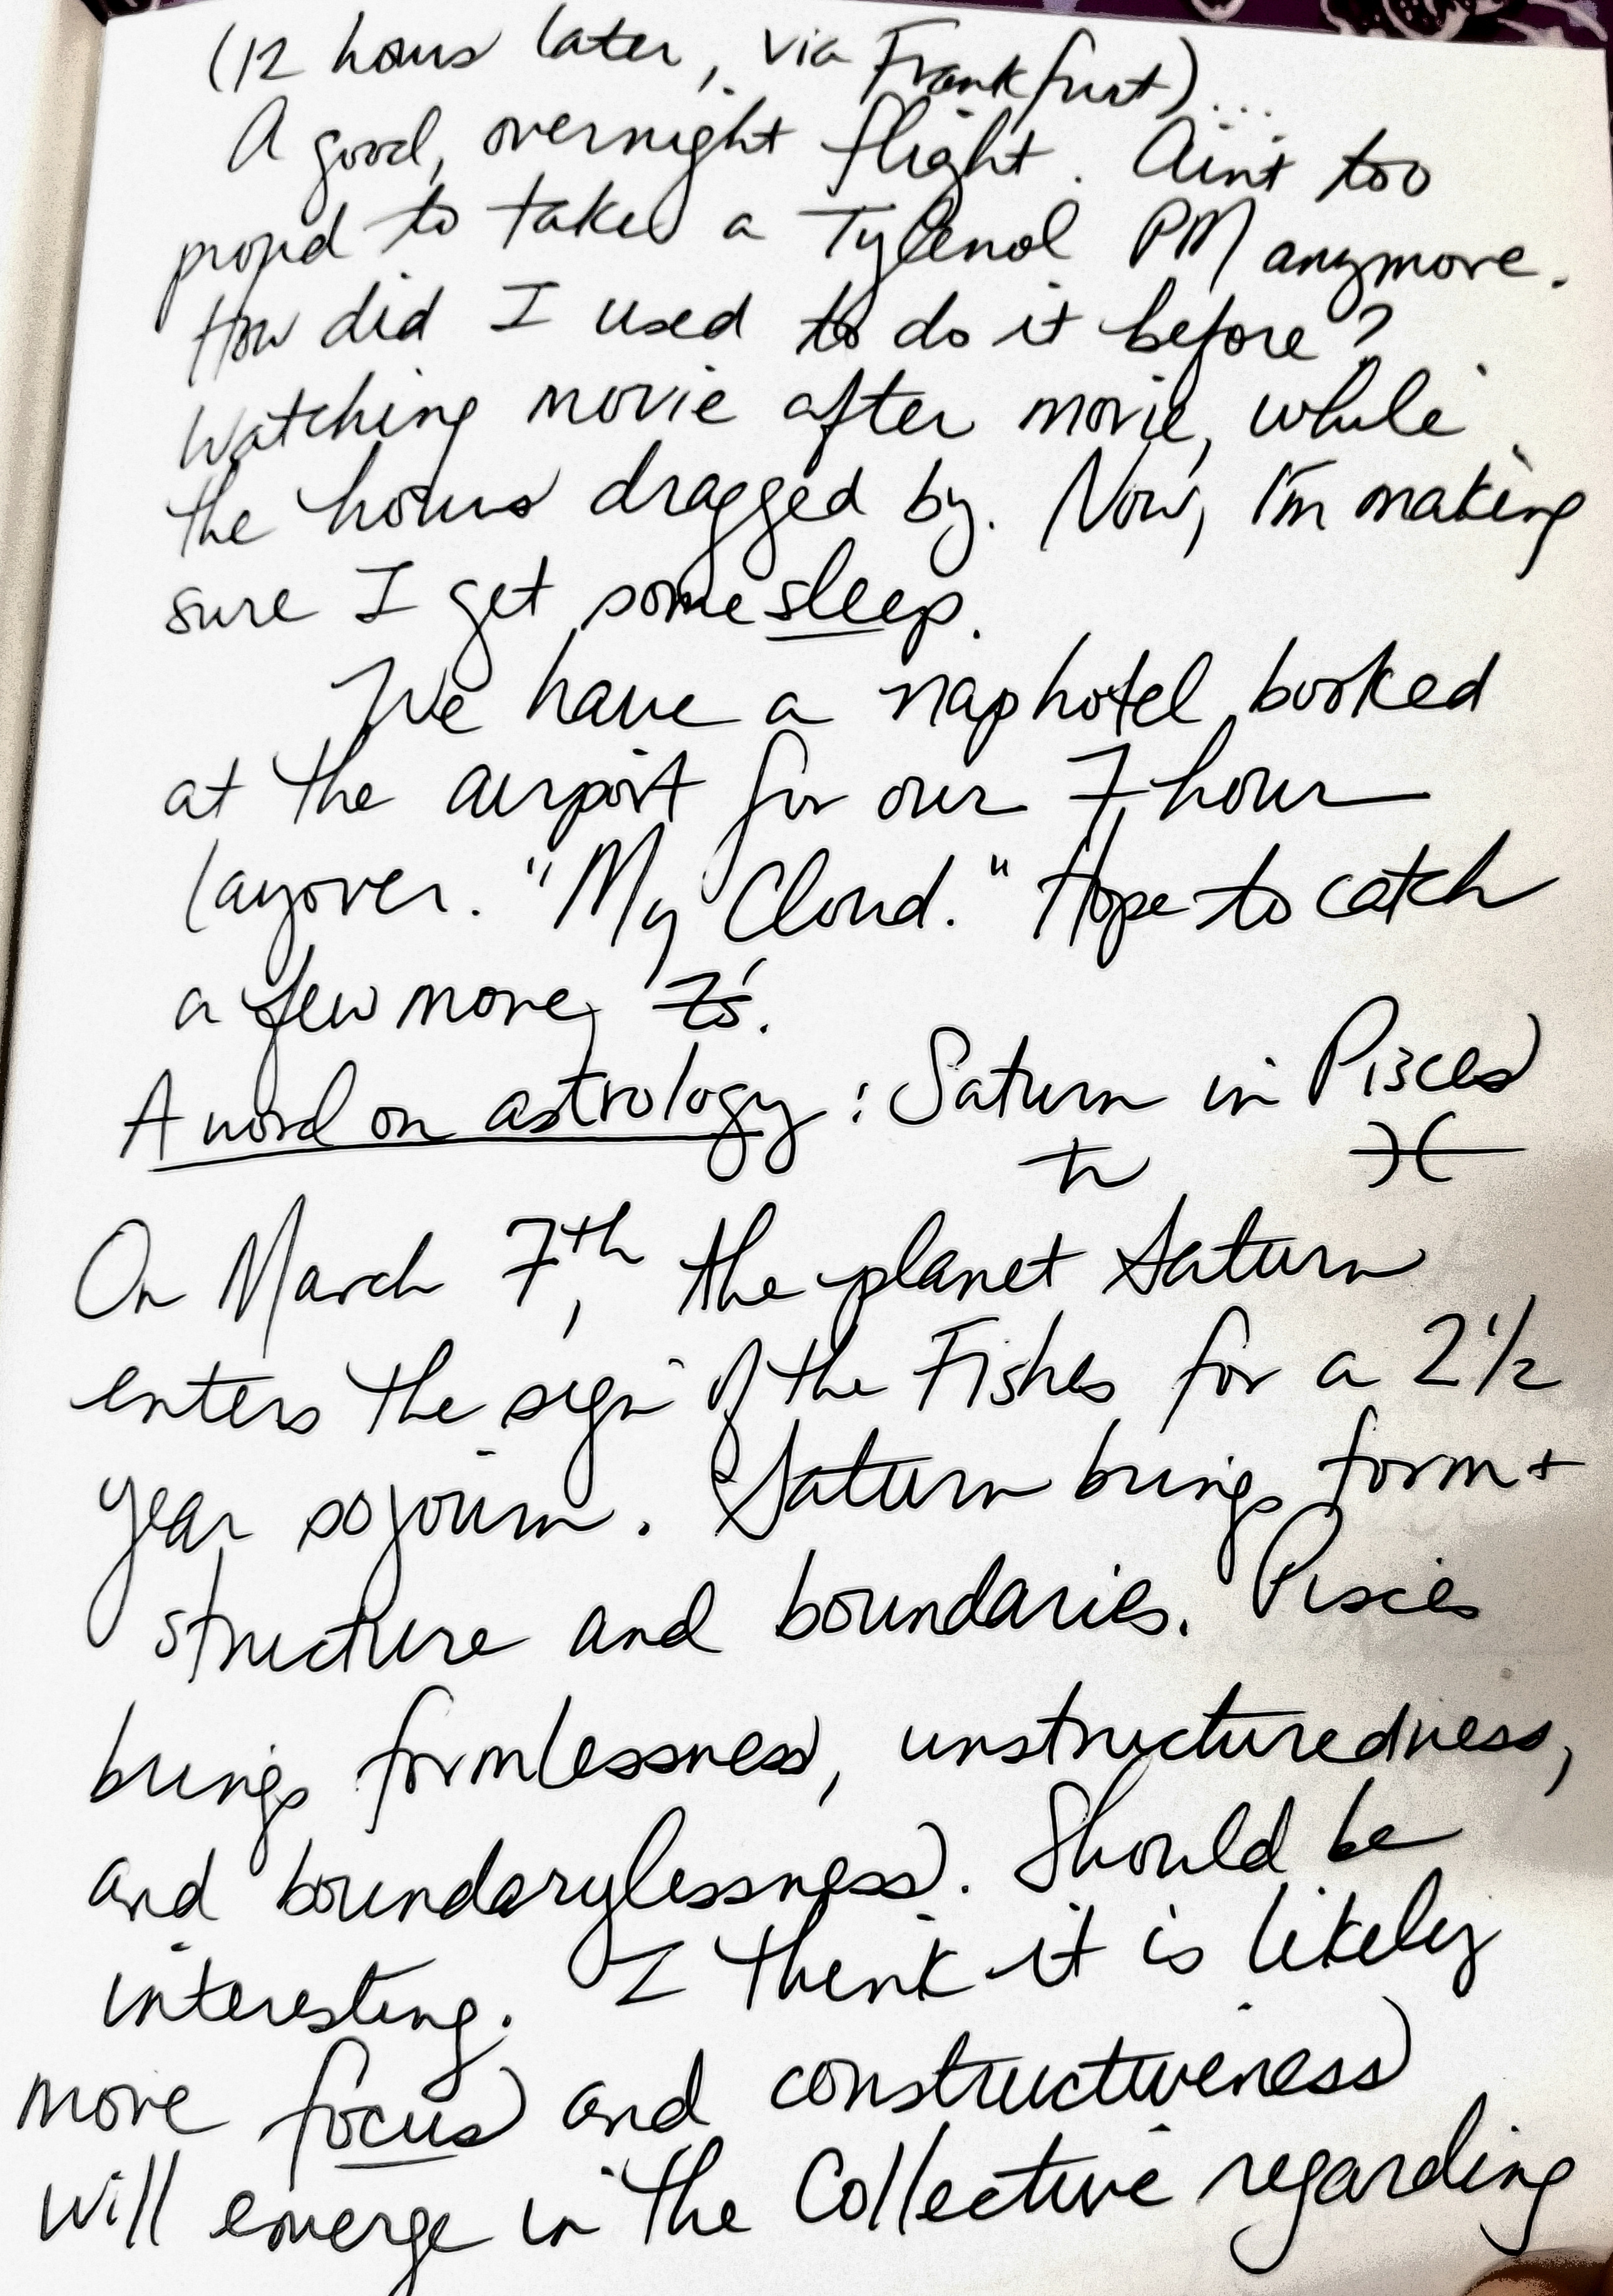 (12 hours later, via Frankfurt)...
A good, overnight flight. Aint too
proud to take a Tylenol PM anymore.
How did I used to do it before?
Watching movie after movie, while
the hours dragged by. Now, I'm making
sure I get some sleep.
We have a nap hotel booked
at the airport for our 7 hour
layover. "My Cloud." Hope to catch
a few more Z's.
A word on astrology: Saturn in Pisces
♄ ♓
On March 7th, the planet Saturn
enters the sign of the Fishes for a 2 1/2
year sojourn. Saturn brings form +
structure and boundaries. Pisces
brings formlessness, unstructuredness,
and boundarylessness. Should be
interesting. I think it is likely
more focus and constructiveness
will emerge in the Collective regarding